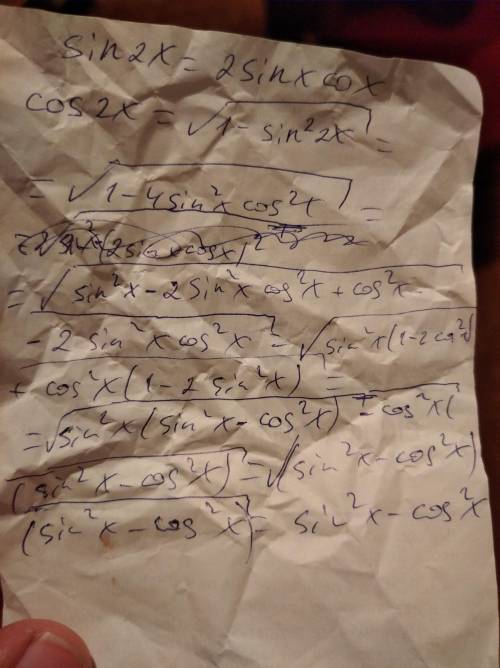 sin2x = 2sinx cox
cos2x = √1 - sin²2x =
= √1 - 4sin²x cos²x =
= √sin²x - 2sin²x cos²x + cos²x -
- 2sin²x cos²x = √sin²x(1-2cos²x)
+ cos²x(1 - 2sin²x) =
= √sin²x(sin²x - cos²x) - cos²x(
(sin²x - cos²x) = √(sin²x - cos²x)
(sin²x - cos²x) = sin²x - cos²x